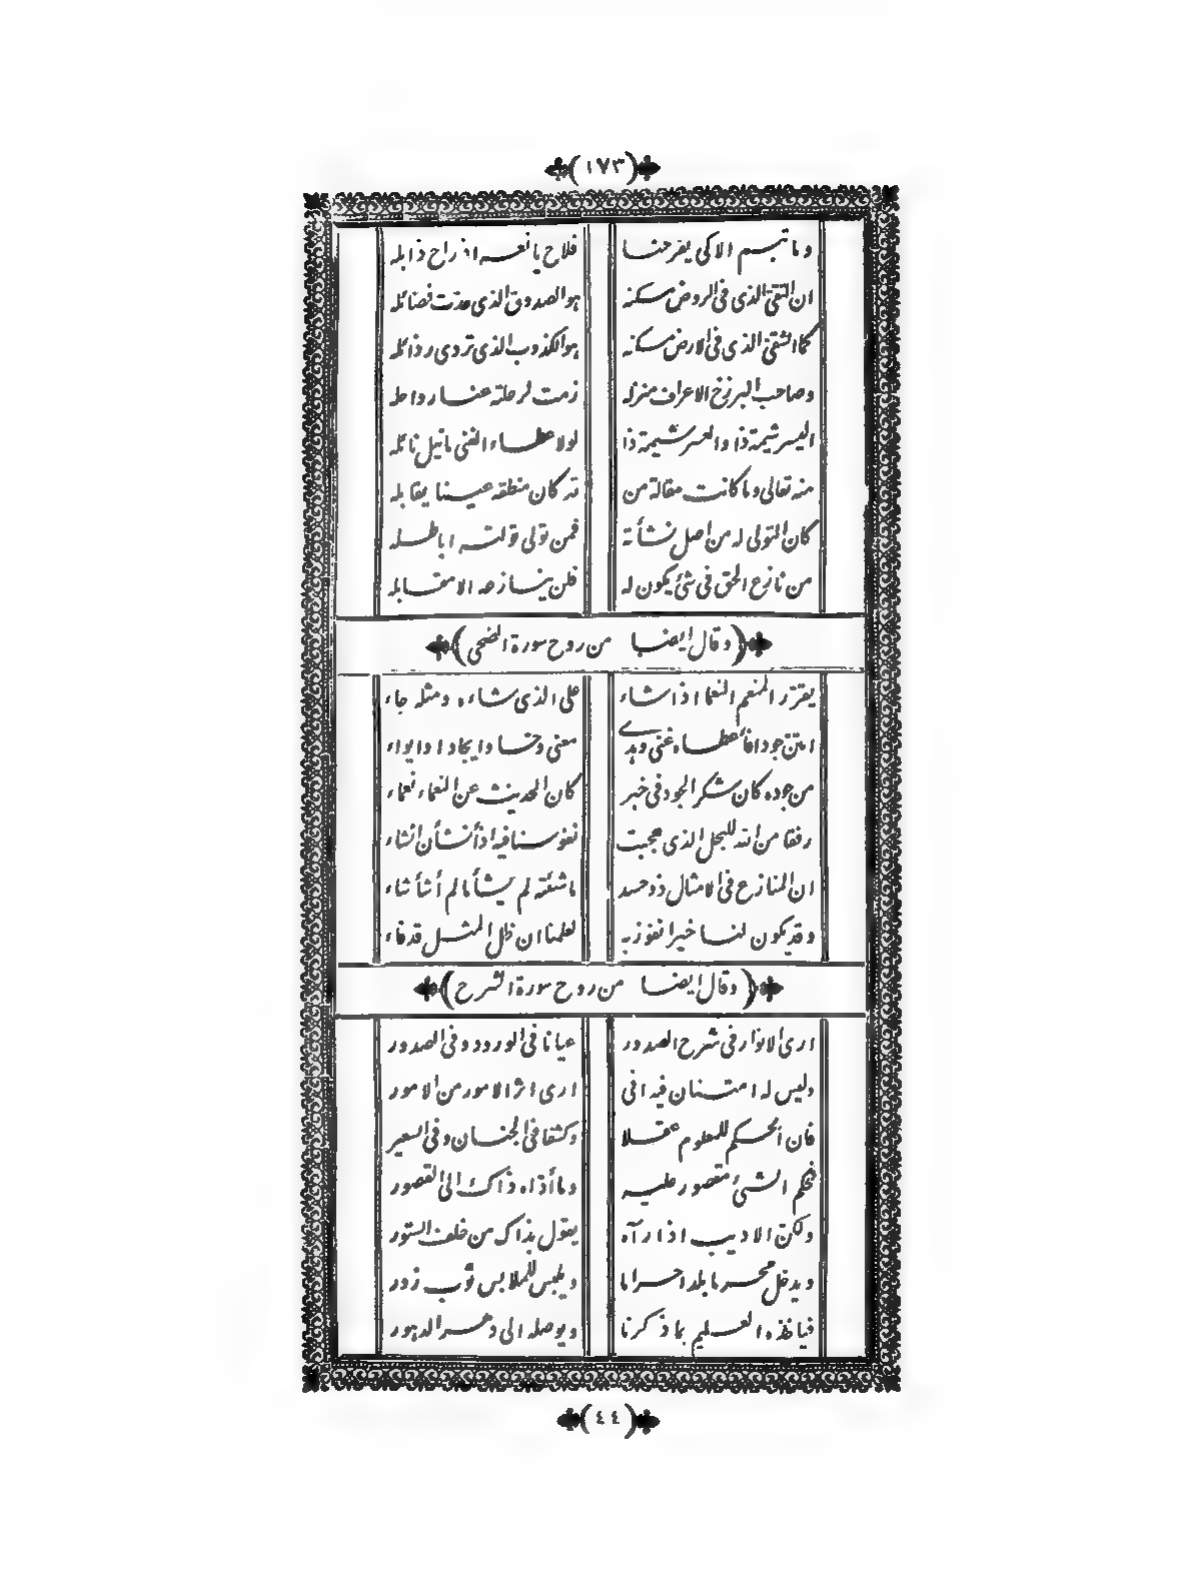 (١٧٣)
وما تبسم الا كى يفرحنا فلاح يانعه اذ راح ذابله
ان التقى الذى فى الروض مسكنه هو الصدوق الذى عدت فضائله
كما الشقى الذى فى الارض مسكنه هو الكذوب الذى تردى رذائله
وصاحب البرزخ الاعراف منزله زمت لرحلته عنا رواحله
اليسر شيمة ذا والعسر شيمة ذا لولا عطاء الغنى ما نيل نائله
منه تعالى وما كانت مقالة من قد كان منطقه عينا يقابله
كان التولى له من اصل نشأته فمن تولى تولته اباطله
من نازع الحق فى شئ يكون له فلن ينازعه الا مقابله
(وقال ايضا من روح سورة الضحى)
يقرر المنعم النعما اذا شاء على الذى شاءه ومثله جاء
امتن جودا فاعطاء غنى وهدى معنى وحسا وايجادا وايواء
من جوده كان شكر الجود فى خبر كان الحديث عن النعماء نعماء
رفقا من الله للبخل الذى حجبت نفوسنا فيه اذ أنشأن انشاء
ان المنازع فى الامثال ذو حسد ما شئته لم يشأ ما لم أشأ شاء
وقد يكون لنا خيرا نفوز به لعلمنا ان ظل المثل قد فاء
(وقال ايضا من روح سورة الشرح)
ارى الانوار فى شرح الصدور عيانا فى الورود وفى الصدور
وليس له امتنان فيه انى ارى اثر الامور من الامور
فان الحكم للمعلوم عقلا وكشفا فى الجنان وفى السعير
فحكم الشئ مقصور عليه وما أذاه ذاك الى القصور
ولكن الاديب اذا رآه يقول بذاك من خلف الستور
ويدخل محرما بلدا حراما ويلبس للملابس ثوب زور
فيأخذه العليم بما ذكرنا ويوصله الى دهر الدهور
(٤٤)